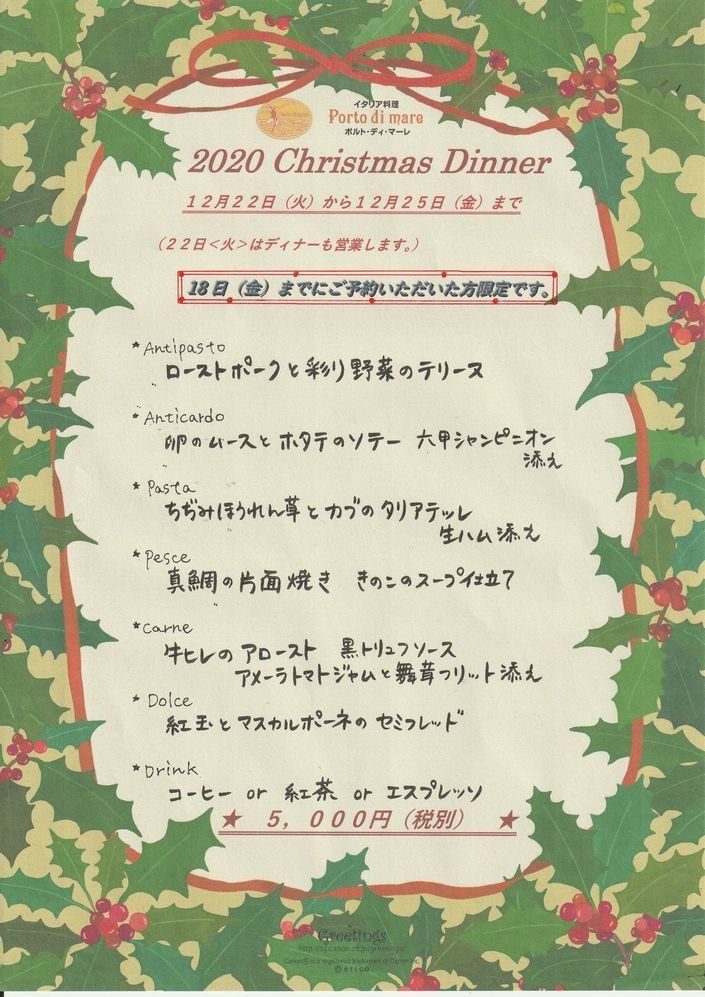 イタリア料理
Porto di mare
ポルト・ディ・マーレ
2020 Christmas Dinner
12月22日（火）から12月25日（金）まで
（22日＜火＞はディナーも営業します。）
18日（金）までにご予約いただいた方限定です。
*Antipasto
ローストポークと彩り野菜のテリーヌ
*Anticardo
卵のムースとホタテのソテー 六甲シャンピニオン
添え
*Pasta
ちぢみほうれん草とカブのタリアテッレ
生ハム添え
*Pesce
真鯛の片面焼き きのこのスープ仕立て
*Carne
牛ヒレのアロースト 黒トリュフソース
アメーラトマトジャムと舞茸フリット添え
*Dolce
紅玉とマスカルポーネのセミフレッド
*Drink
コーヒー or 紅茶 or エスプレッソ
★ 5,000円（税別） ★
Greetings
http://bj.canon.co.jp/greetings/
Canon®is a registered trademark of Canon Inc.